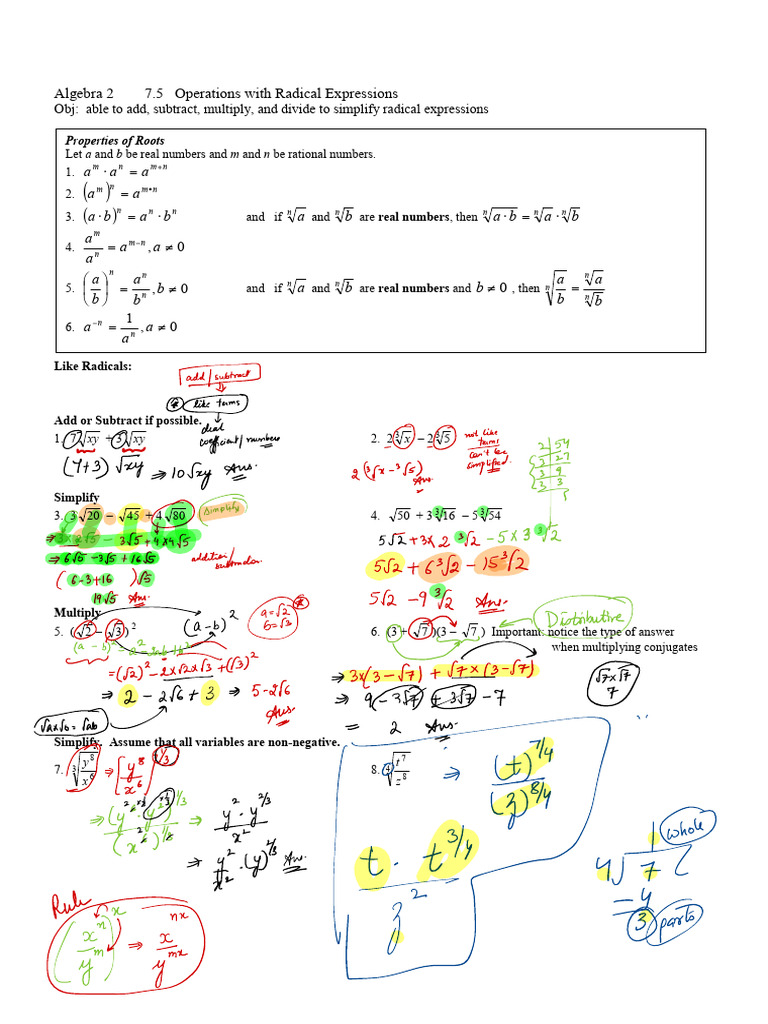 Algebra 2 7.5 Operations with Radical Expressions
Obj: able to add, subtract, multiply, and divide to simplify radical expressions
Properties of Roots
Let a and b be real numbers and m and n be rational numbers.
1. a^m · a^n = a^(m+n)
2. (a^m)^n = a^(m•n)
3. (a · b)^n = a^n · b^n and if ⁿ√a and ⁿ√b are real numbers, then ⁿ√(a · b) = ⁿ√a · ⁿ√b
4. a^m / a^n = a^(m−n), a ≠ 0
5. (a/b)^n = a^n / b^n, b ≠ 0 and if ⁿ√a and ⁿ√b are real numbers and b ≠ 0 , then ⁿ√(a/b) = ⁿ√a / ⁿ√b
6. a^(−n) = 1 / a^n, a ≠ 0
Like Radicals:
add/subtract
like terms
Add or Subtract if possible.
deal
coefficient/numbers
1. 7√xy + 3√xy
(7+3) √xy ⇒ 10√xy Ans.
2. 2∛x − 2∛5
not like
terms
can't be
simplified
2(∛x − ∛5)
Ans
2 54
3 27
3 9
3 3
Simplify
3. 3√20 − √45 + 4√80
Simplify
⇒ 3×2√5 − 3√5 + 4×4√5
⇒ 6√5 − 3√5 + 16√5
(6−3+16)√5
19√5 Ans.
addition/
4. √50 + 3∛16 − 5∛54
5√2 + 3×2 ∛2 − 5×3 ∛2
5√2 + 6∛2 − 15∛2
5√2 − 9∛2 Ans.
Multiply
5. (√2 − √3)²
(a−b)²
a=√2
b=√3
(a − b)² = a² − 2ab + b²
= (√2)² − 2×√2×√3 + (√3)²
⇒ 2 − 2√6 + 3 ⇒ 5−2√6
Ans
√a×√b = √ab
6. (3 + √7)(3 − √7) Important: notice the type of answer
when multiplying conjugates
Distributive
⇒ 3×(3−√7) + √7×(3−√7)
⇒ 9 − 3√7 + 3√7 − 7
= 2 Ans.
√7×√7
7
Simplify. Assume that all variables are non-negative.
7. ∛(y⁸/x⁶) ⇒ [y⁸/x⁶]^(1/3)
⇒ y² · y^(2/3) / x²
⇒ y²/x² · (y)^(2/3) Ans.
Rule
(x^n / y^m)^x ⇒ x^(nx) / y^(mx)
8. ⁴√(t⁷/z⁸) ⇒ (t)^(7/4) / (z)^(8/4)
t · t^(3/4) / z²
1 whole
4√7
−4
3 parts